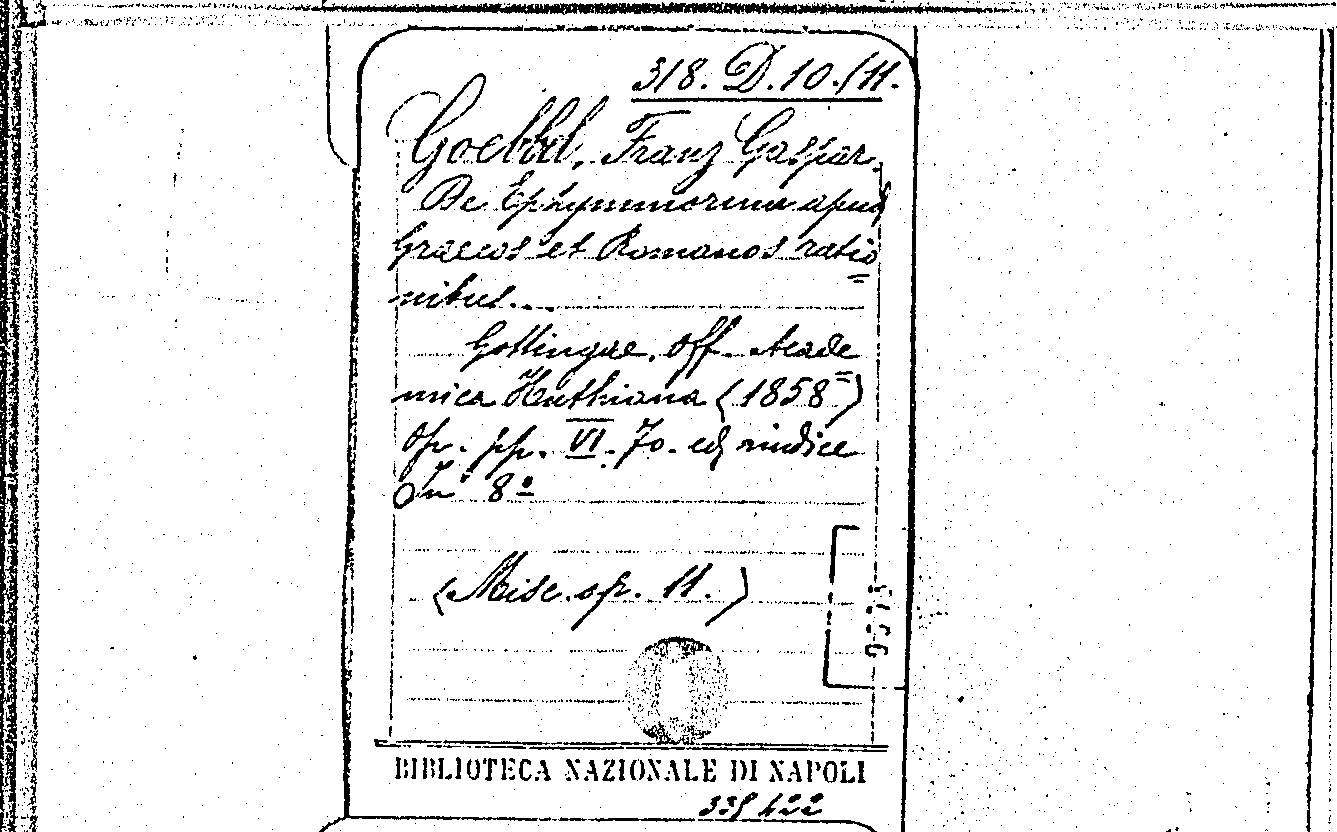 318. D. 10./11.
Goebbel, Franz Gaspar.
De Ephymniorum apud
Graecos et Romanos ratio=
nibus...
Gottingae, Off. Acade=
mica Huthiana (1858)
Op. pp. VI. 70. ed indice
In 8º
(Misc. op. 11.)
BIBLIOTECA NAZIONALE DI NAPOLI